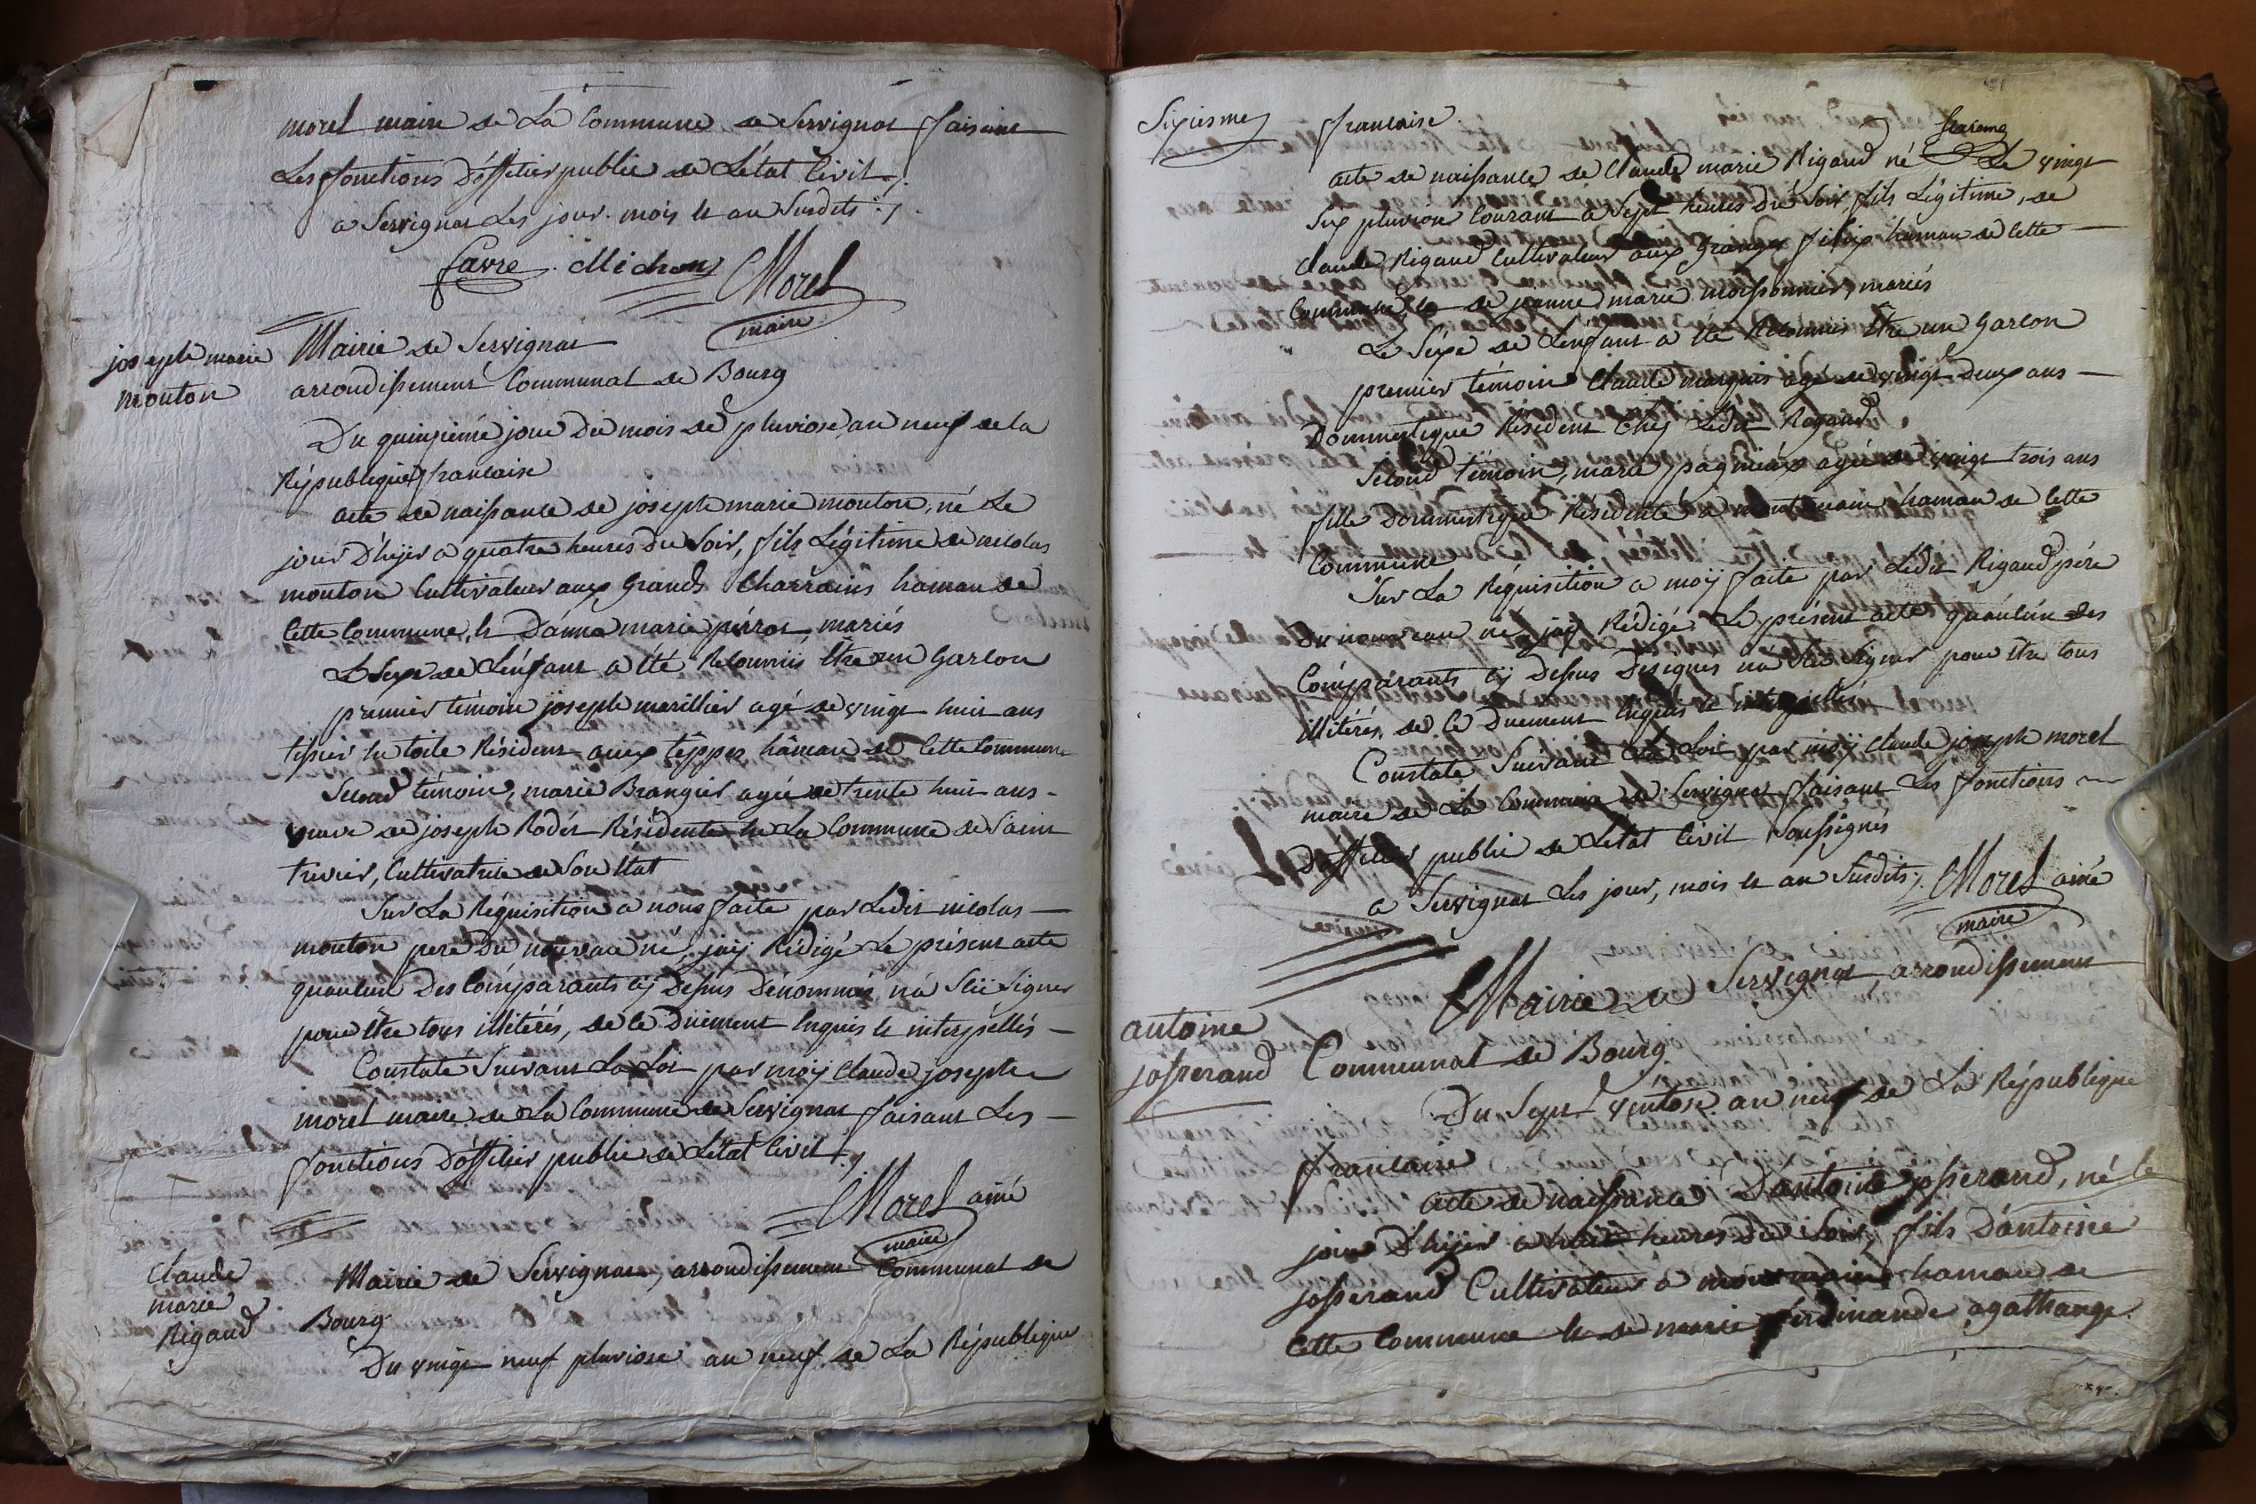 morel maire de La Commune de Servignat faisant
Les fonctions D'offitier public de L'état Civil ./.
a Servignat Les jour. mois et an Susdits ./.
favre . Michon Morel
maire
joseph marie
mouton
Mairie de Servignat
arrondissement Communal de Bourg
Du quinzième jour du mois de pluviose an neuf de la
République francaise
acte de naissance de joseph marie mouton, né Le
jour D'hyer a quatre heures du Soir, fils Légitime de nicolas
mouton Cultivateur aux Grands Charrains hamau de
Cette Commune, et D'anna marie pérrot, mariés
Le Sexe de L'enfant a été Reconnu Etre un Garcon
premier témoin joseph marillier agé de vingt huit ans
tissier en toile Résident aux têppes hâmau de Cette Commune
Second témoin, marie Brangier agée de trente huit ans -
veuve de joseph Rodet Résidente en La Commune de Saint
trivier, Cultivatrice de Son Etat
Sur La Réquisition a nous faite par Ledit nicolas
mouton pere Du nouveau né, jaÿ Rédigé Le présent acte
quaucun Des Comparants cÿ Dessus Dénommés n'a Sçu Signer
pour Etre tous illitérés, de ce Dûement Enquis et interpéllés -
Constaté Suivant La Loi par moÿ Claude joseph
morel maire de La Commune de Servignat faisant Les -
fonctions D'offitier public de L'état Civil ./.
Morel ainé
maire
Claude
marie
Rigaud
Mairie de Servignat, arrondissement Communal de
Bourg
Du vingt neuf pluviose an neuf de La République
Sixiesme
francaise.
acte de naissance de Claude marie Rigaud né Le vingt
Six pluviose Courant a Sept heures du Soir, fils Légitime, de
Claude Rigaud Cultivateur aux Granges hamau de Cette
Commune et de jeanne marie moissonnier, mariés
Le Sexe de L'enfant a été Reconnu Etre un Garcon
premier témoin Claude marquis agé de vingt deux ans -
Dommestique Résident Chez Ledit Rigaud
Second témoin, marie pagnieux agée de vingt trois ans
fille Dommestique Résidente a montmain hamau de Cette
Commune
Sur La Réquisition a moÿ faite par Ledit Rigaud pére
Du nouveau né jaÿ Rédigé Le présent acte quaucun Des
Comparants cÿ Dessus Désignés n'a Sçu Signer pour Etre tous
illitérés, de Ce Duement Enquis et interpellés
Constaté Suivant La Loi par moÿ Claude joseph morel
maire de La Commune de Servignat faisant Les fonctions
D'offitier public de L'état Civil Soussignés
a Servignat Les jour, mois et an Susdits ./. Morel ainé
maire
antoine
josserand
Mairie de Servignat, arrondissement
Communal de Bourg
Du Sept ventose an neuf de La République
francaise
acte de naissance D'antoine josserand, né le
jour D'hyer a huit heures du Soir, fils D'antoine
josserand Cultivateur a montmain hamau de
Cette Commune et de marie ferdinande agathange